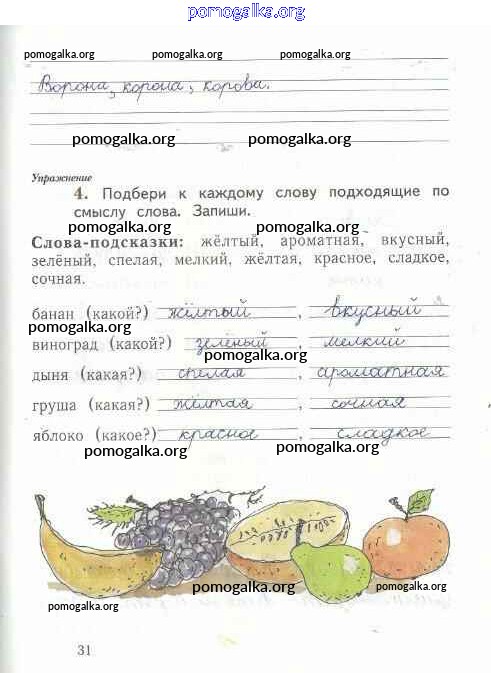 pomogalka.org
pomogalka.org pomogalka.org pomogalka.org
Ворона, корона, корова.
pomogalka.org pomogalka.org
Упражнение
4. Подбери к каждому слову подходящие по
смыслу слова. Запиши.
Слова-подсказки: жёлтый, ароматная, вкусный,
зелёный, спелая, мелкий, жёлтая, красное, сладкое,
сочная.
банан (какой?) жёлтый, вкусный
pomogalka.org pomogalka.org
виноград (какой?) зелёный, мелкий
pomogalka.org
дыня (какая?) спелая, ароматная
pomogalka.org
груша (какая?) жёлтая, сочная
яблоко (какое?) красное, сладкое
pomogalka.org pomogalka.org
pomogalka.org
pomogalka.org pomogalka.org
31